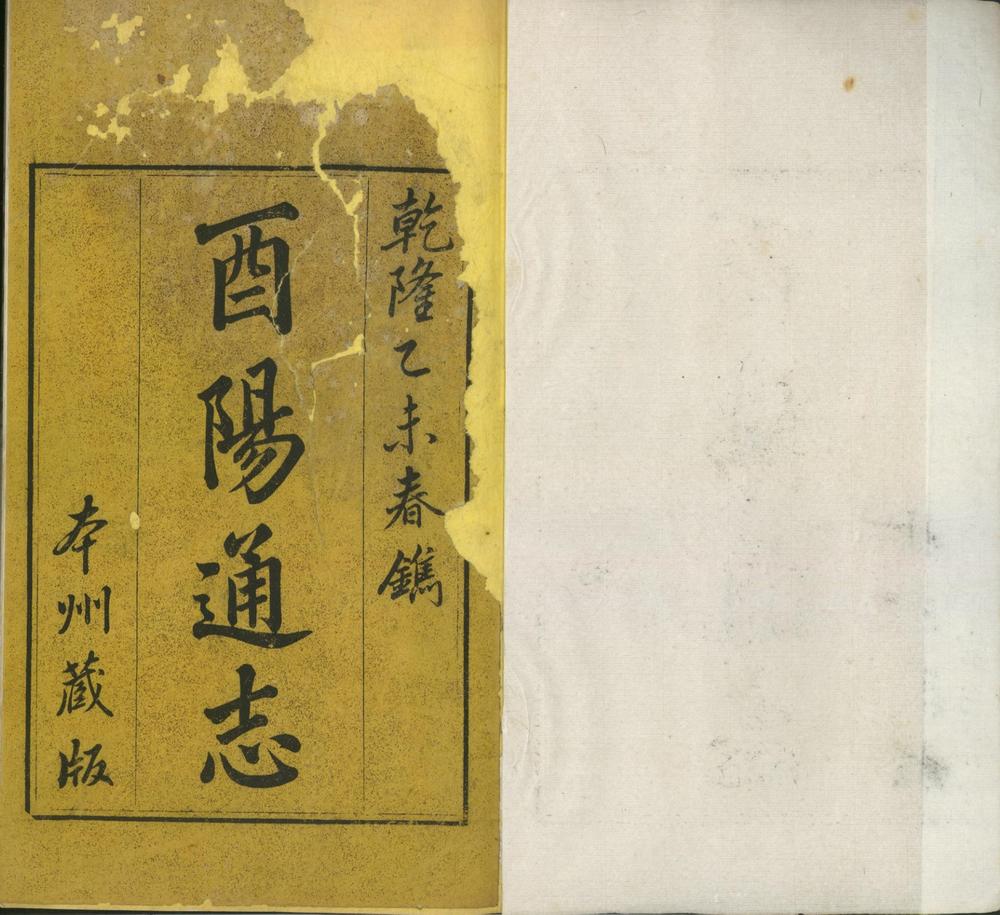 乾隆乙未春鐫
酉陽通志
本州藏版